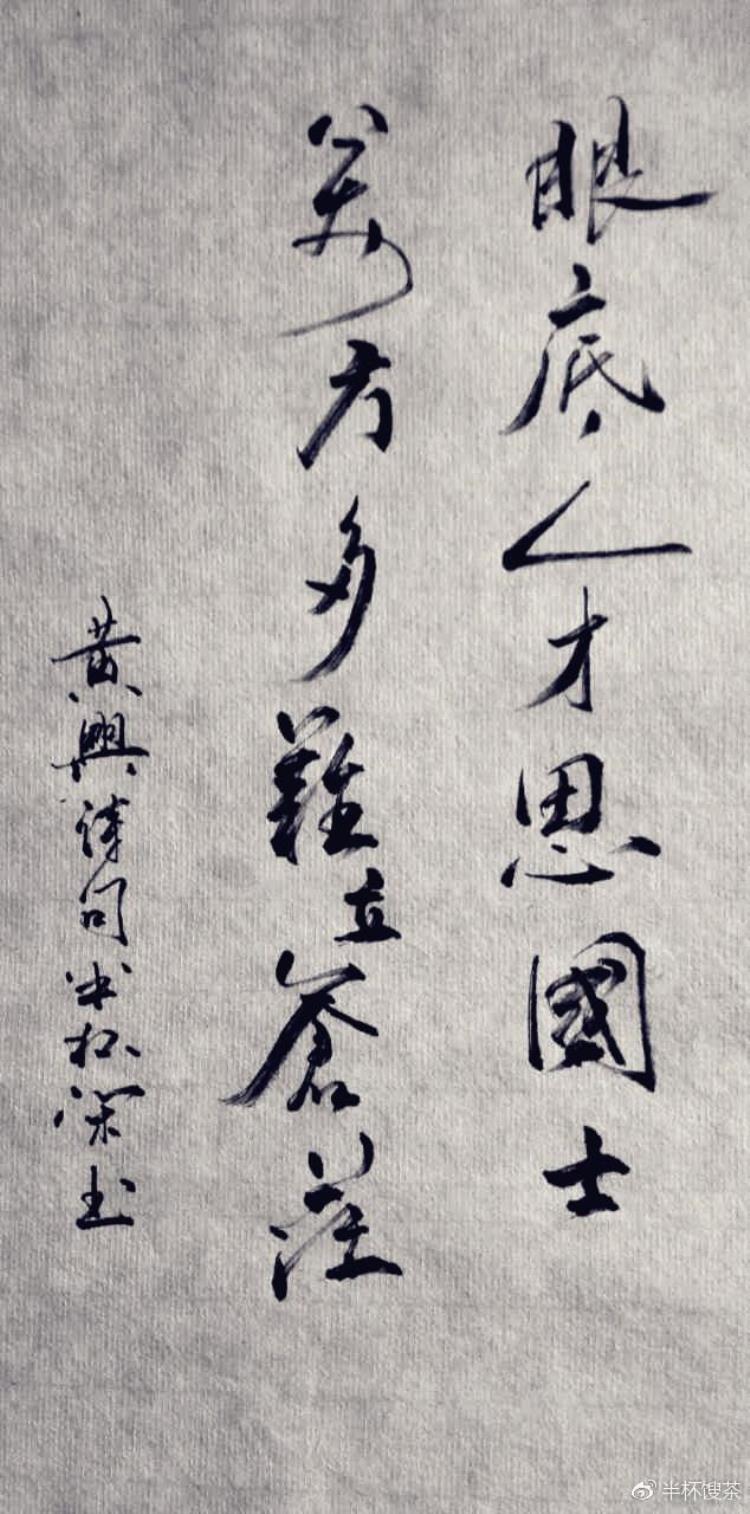 眼底人才思國士
萬方多難立蒼茫
黄興詩句半杯閑書
半杯馊茶